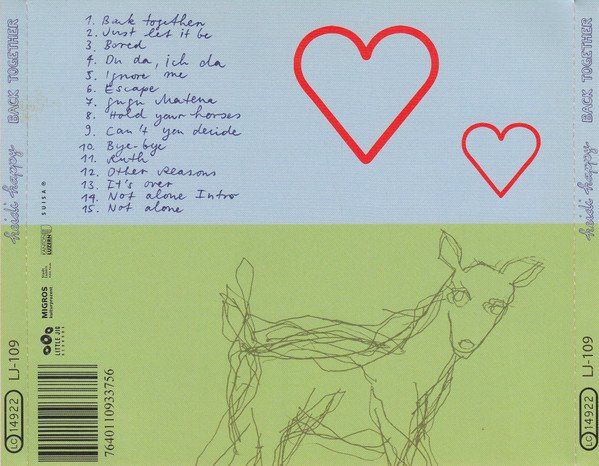 1. Back together
2. Just let it be
3. Bored
4. Du da, ich da
5. Ignore me
6. Escape
7. Gugu Matena
8. Hold your horses
9. Can't you decide
10. Bye-bye
11. Ruth
12. Other Reasons
13. It's over
14. Not alone Intro
15. Not alone
heidi happy BACK TOGETHER
SUISA
KANTON LUZERN
MIGROS
kulturprozent
LITTLE JIG
RECORDS
LC 14922 LJ-109
7640110933756
heidi happy BACK TOGETHER
LC 14922 LJ-109